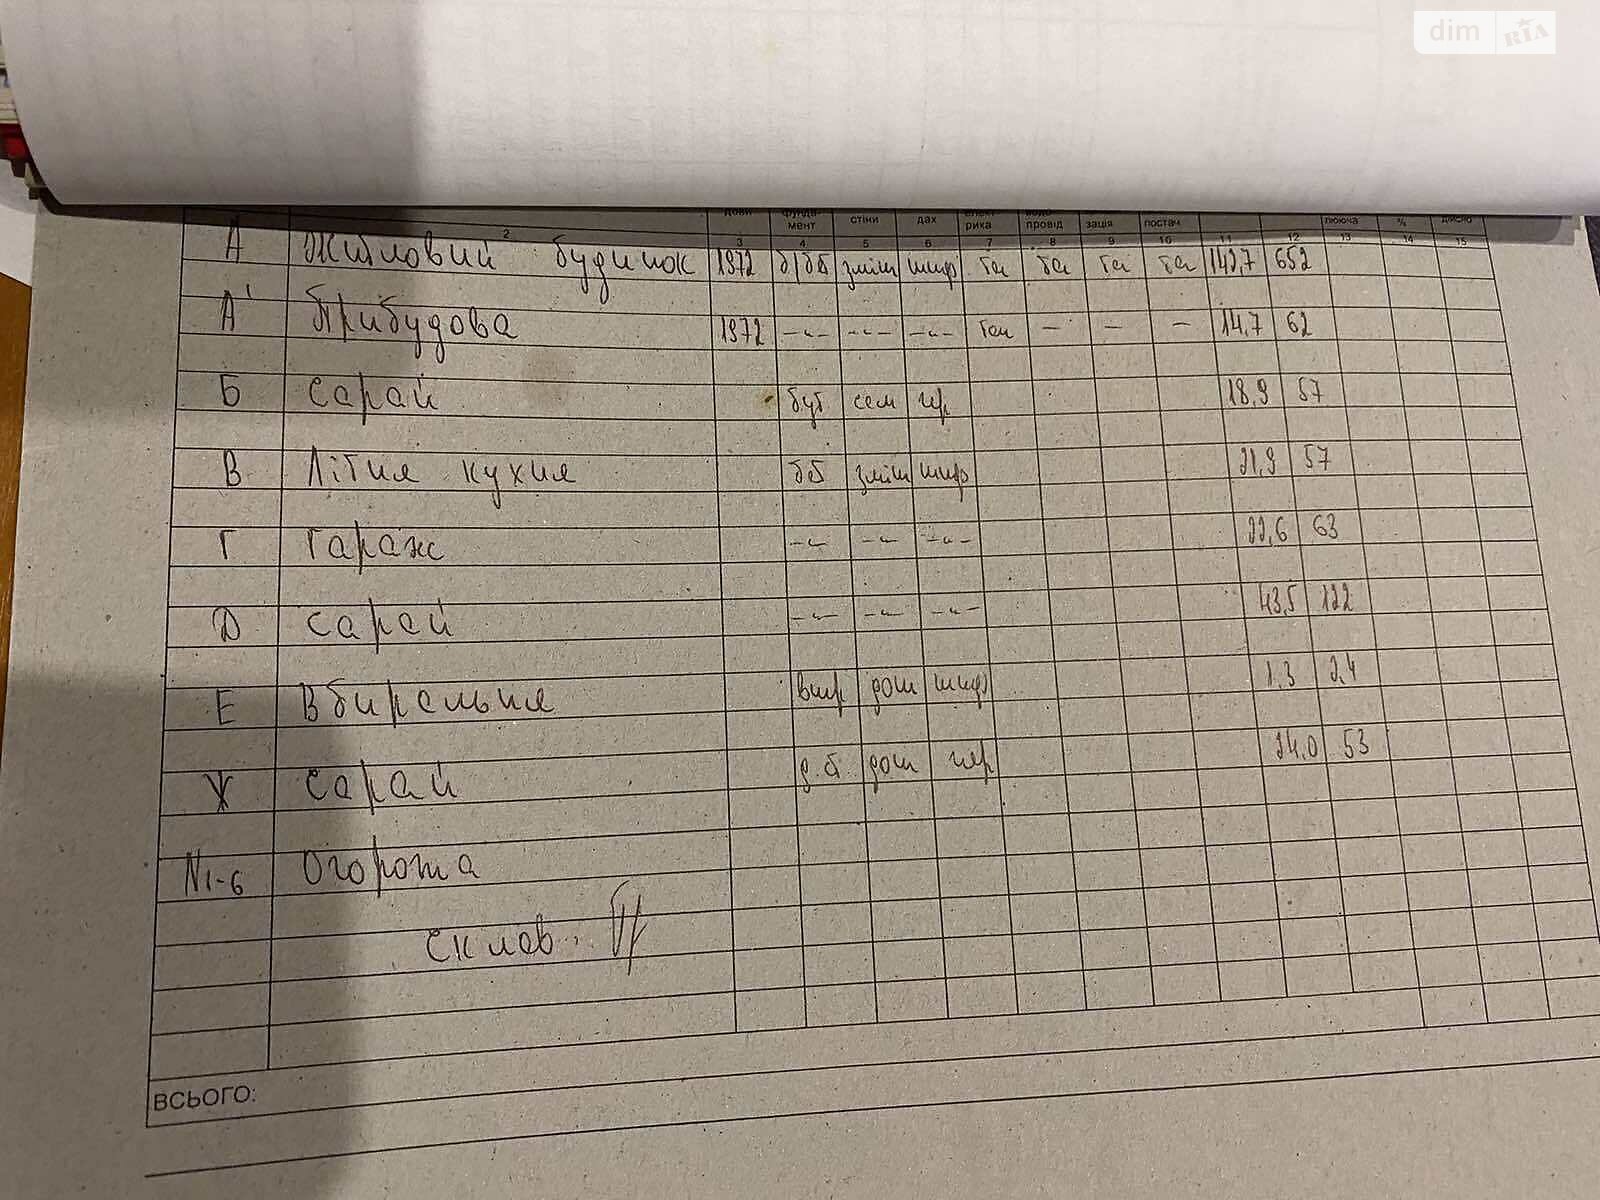 dim RIA
дови фунда- стіни дах елект водо- зація постач лююча % дійсно
мент рика провід
2 3 4 5 6 7 8 9 10 11 12 13 14 15
А Житловий будинок 1972 б/бб зміш шиф так так так 142,7 652
А' Прибудова 1972 -"- -"- -"- так - - - 14,7 62
Б Сарай бут сам чер 18,9 57
В Літня кухня бб зміш шиф 21,9 57
Г Гараж -"- -"- -"- 22,6 63
Д Сарай -"- -"- -"- 43,5 122
Е Вбиральня дощ шиф 1,3 2,4
Ж Сарай д.б дощ чер 24,0 53
N1-6 Огорожа
склав.
ВСЬОГО: